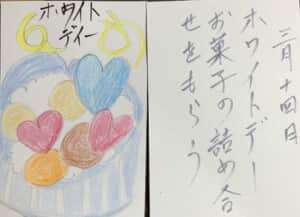 ホワイト
デイー
三月十四日
ホワイトデー
お菓子の詰め合
せをもらう